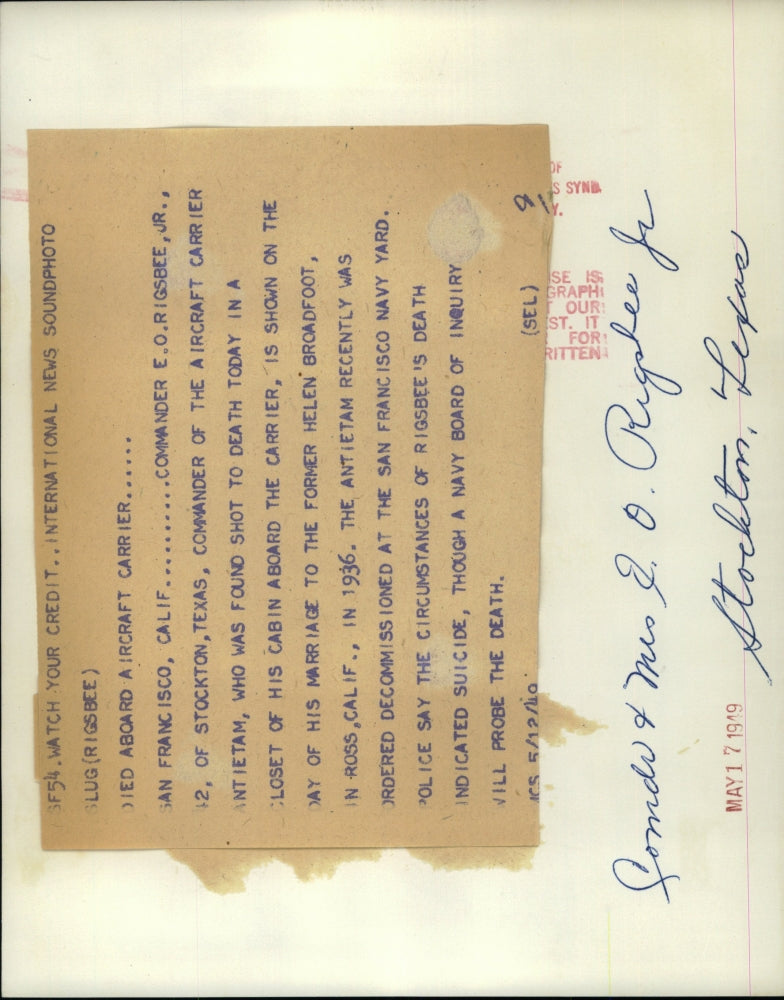 SF54.WATCH YOUR CREDIT..INTERNATIONAL NEWS SOUNDPHOTO
SLUG(RIGSBEE)
DIED ABOARD AIRCRAFT CARRIER......
SAN FRANCISCO, CALIF..........COMMANDER E.O.RIGSBEE,JR.,
42, OF STOCKTON,TEXAS, COMMANDER OF THE AIRCRAFT CARRIER
ANTIETAM, WHO WAS FOUND SHOT TO DEATH TODAY IN A
CLOSET OF HIS CABIN ABOARD THE CARRIER, IS SHOWN ON THE
DAY OF HIS MARRIAGE TO THE FORMER HELEN BROADFOOT,
IN ROSS,CALIF., IN 1936. THE ANTIETAM RECENTLY WAS
ORDERED DECOMMISSIONED AT THE SAN FRANCISCO NAVY YARD.
POLICE SAY THE CIRCUMSTANCES OF RIGSBEE'S DEATH
INDICATED SUICIDE, THOUGH A NAVY BOARD OF INQUIRY
WILL PROBE THE DEATH.
(SEL)
5/12/49
OF
S SYND.
Y.
SE IS
GRAPHI
OUR
ST. IT
FOR
RITTEN
Comdr & Mrs E. O. Rigsbee Jr
Stockton, Texas
MAY 17 1949